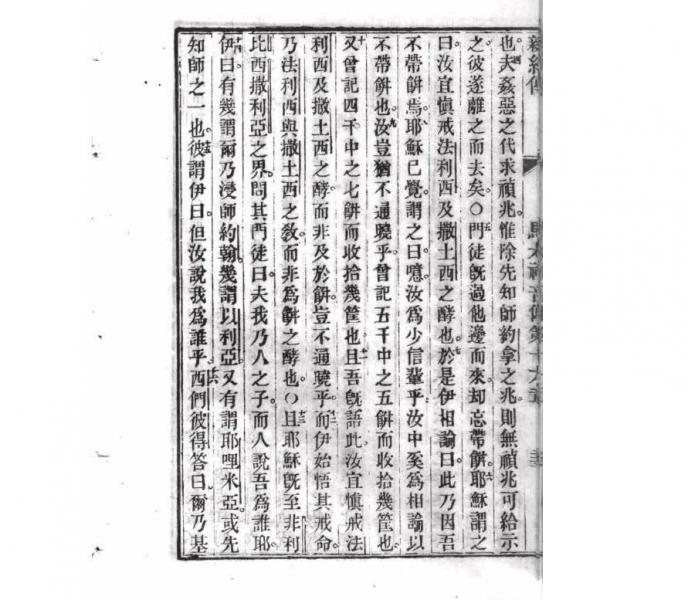 也夫姦惡之代求禎兆。惟除先知師約拿之兆。則無禎兆可給示
之彼遂離之而去矣。○門徒旣過他邊而來。却忘帶餅。耶穌謂之
曰。汝宜慎戒法利西及撒土西之酵也。於是伊相論曰。此乃因吾
不帶餅焉。耶穌已覺謂之曰。噫汝為少信輩乎。汝中奚為相論以
不帶餅也。汝豈猶不通曉乎。曾記五千中之五餅而收拾幾筐也
又曾記四千中之七餅而收拾幾筐也。且吾旣語此汝宜慎戒法
利西及撒土西之酵而非及於餅。豈不通曉乎。而伊始悟其戒命
乃法利西與撒土西之教。而非為餅之酵也。○且耶穌旣至非利
比西撒利亞之界。問其門徒曰。夫我乃人之子。而人說吾為誰耶。
伊曰。有幾謂爾乃浸師約翰。幾謂以利亞。又有謂耶哩米亞。或先
知師之一也。彼謂伊曰。但汝說我為誰乎。西們彼得答曰。爾乃基